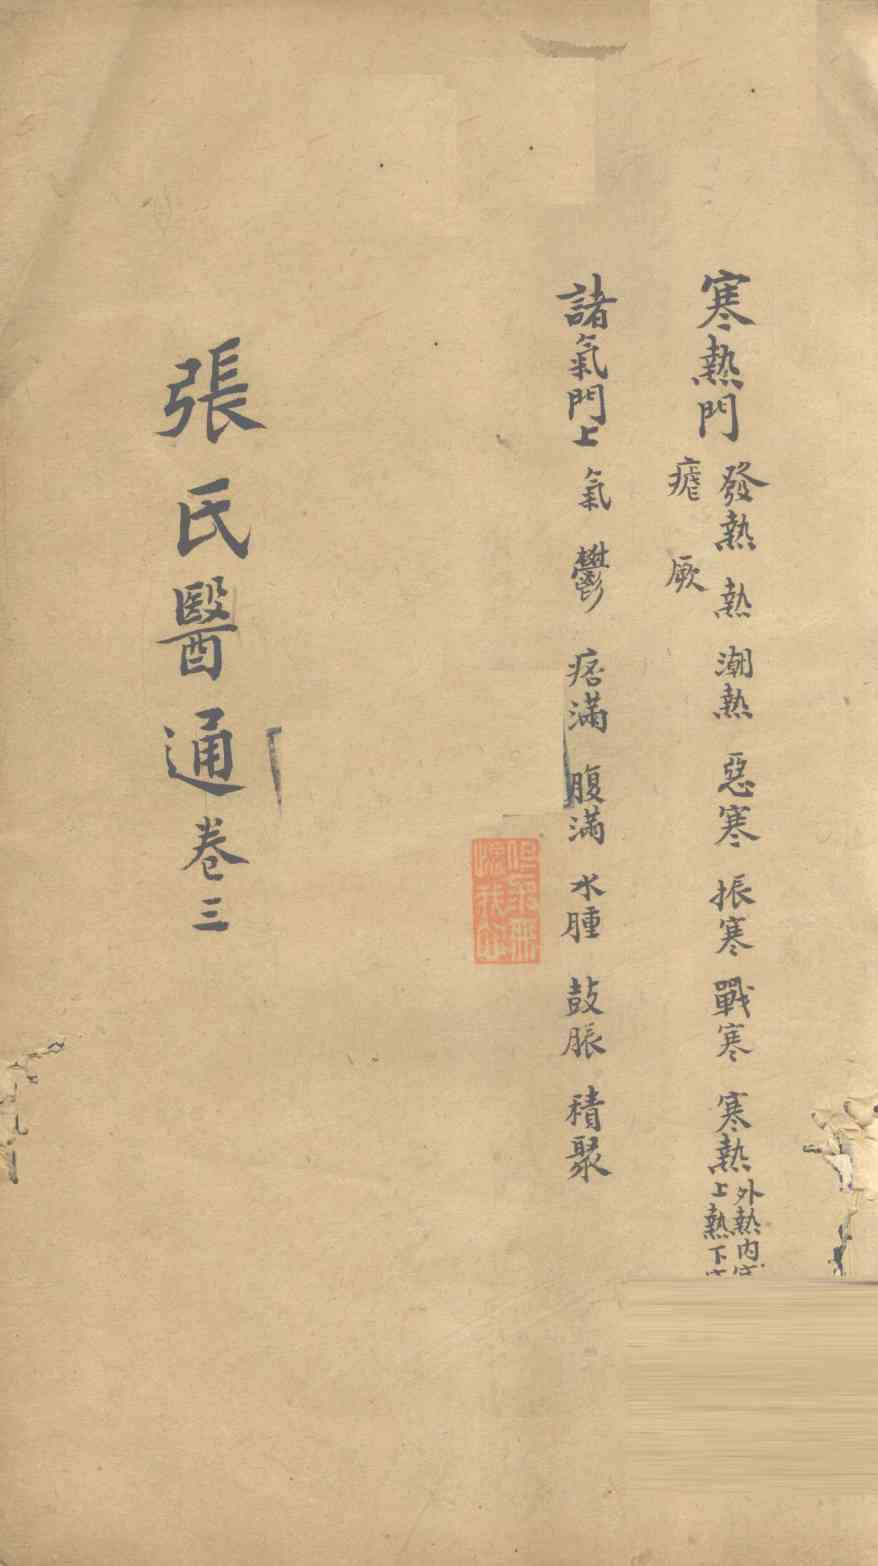 寒熱門 發熱 熱 潮熱 惡寒 振寒 戰寒 寒熱
外熱內
上熱下
瘧 厥
諸氣門上 氣 鬱 痞滿 腹滿 水腫 鼓脹 積聚
張氏醫通卷三